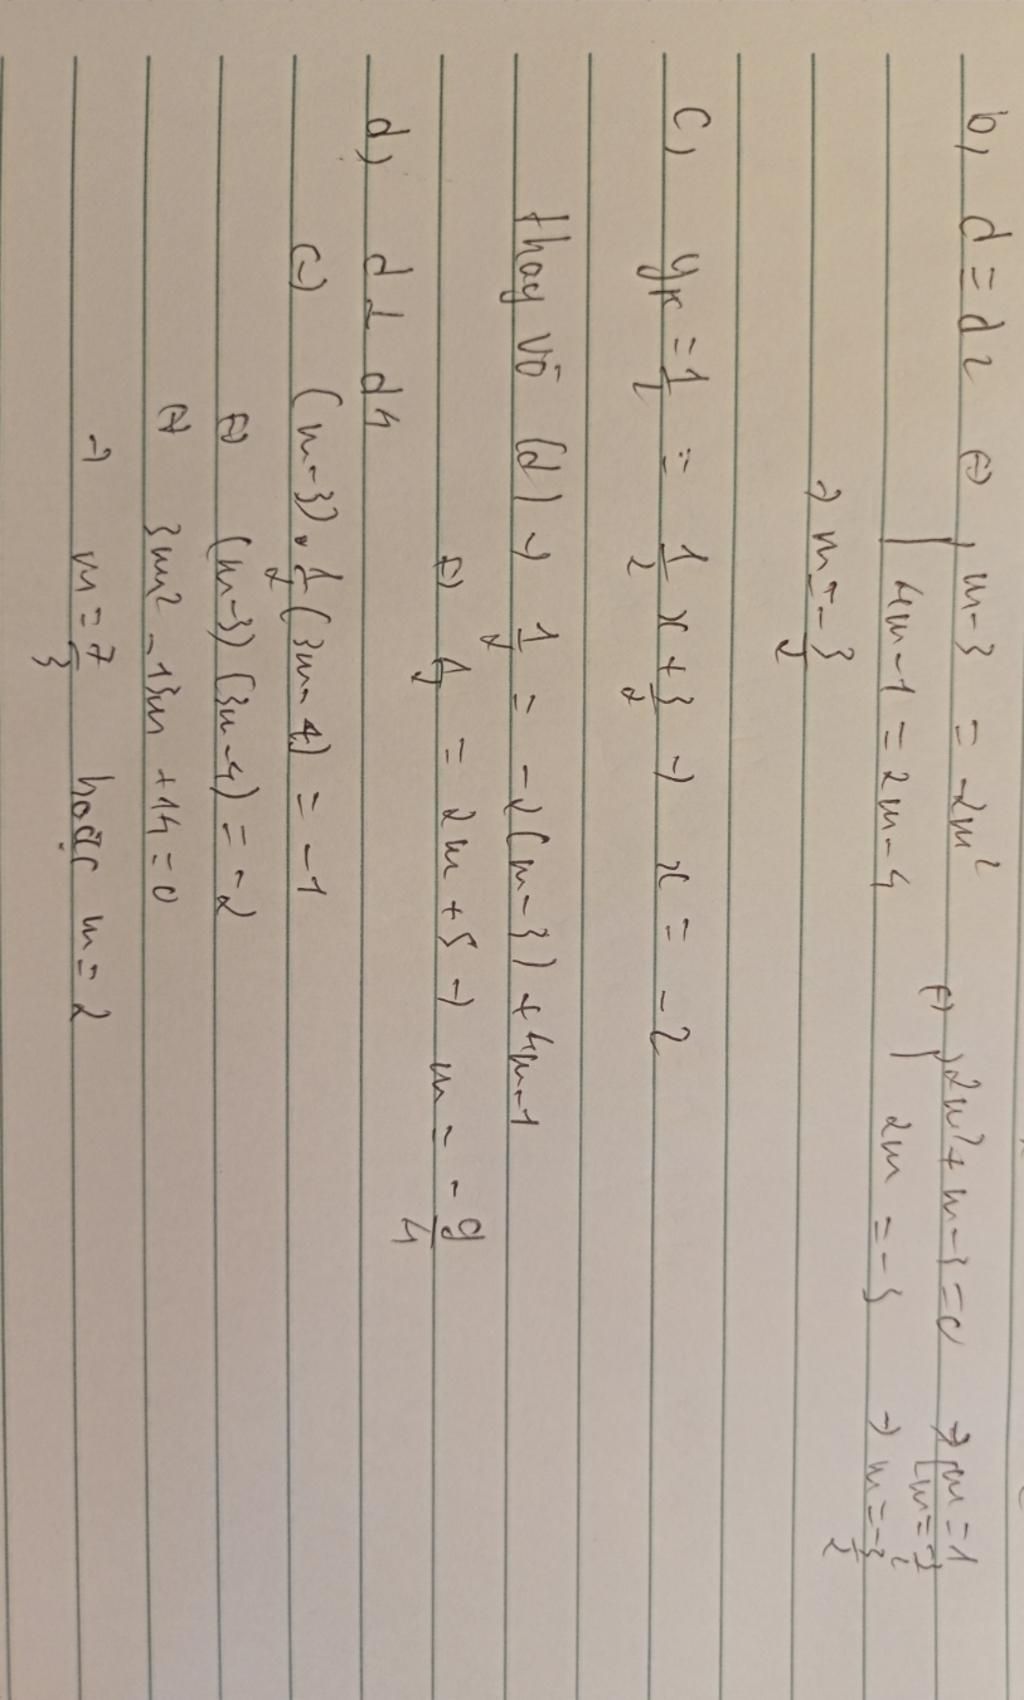 b, d ≡ d2 (=) { m-3 = -2m² (=) { 2m²+m-3=0 → [ m=1
m=-3/2
4m-1 = 2m-4 2m = -3 → m=-3/2
→ m = -3/2
c, yK = 1/2 = 1/2 x + 3/2 → x = -2
thay vô (d) → 1/2 = -2(m-3) + 4m-1
(=) 1/2 = 2m+5 → m = -9/4
d, d ⊥ d4
(=) (m-3).1/2(3m-4) = -1
(=) (m-3)(3m-4) = -2
(=) 3m² - 13m + 14 = 0
→ m = 7/3 hoặc m = 2